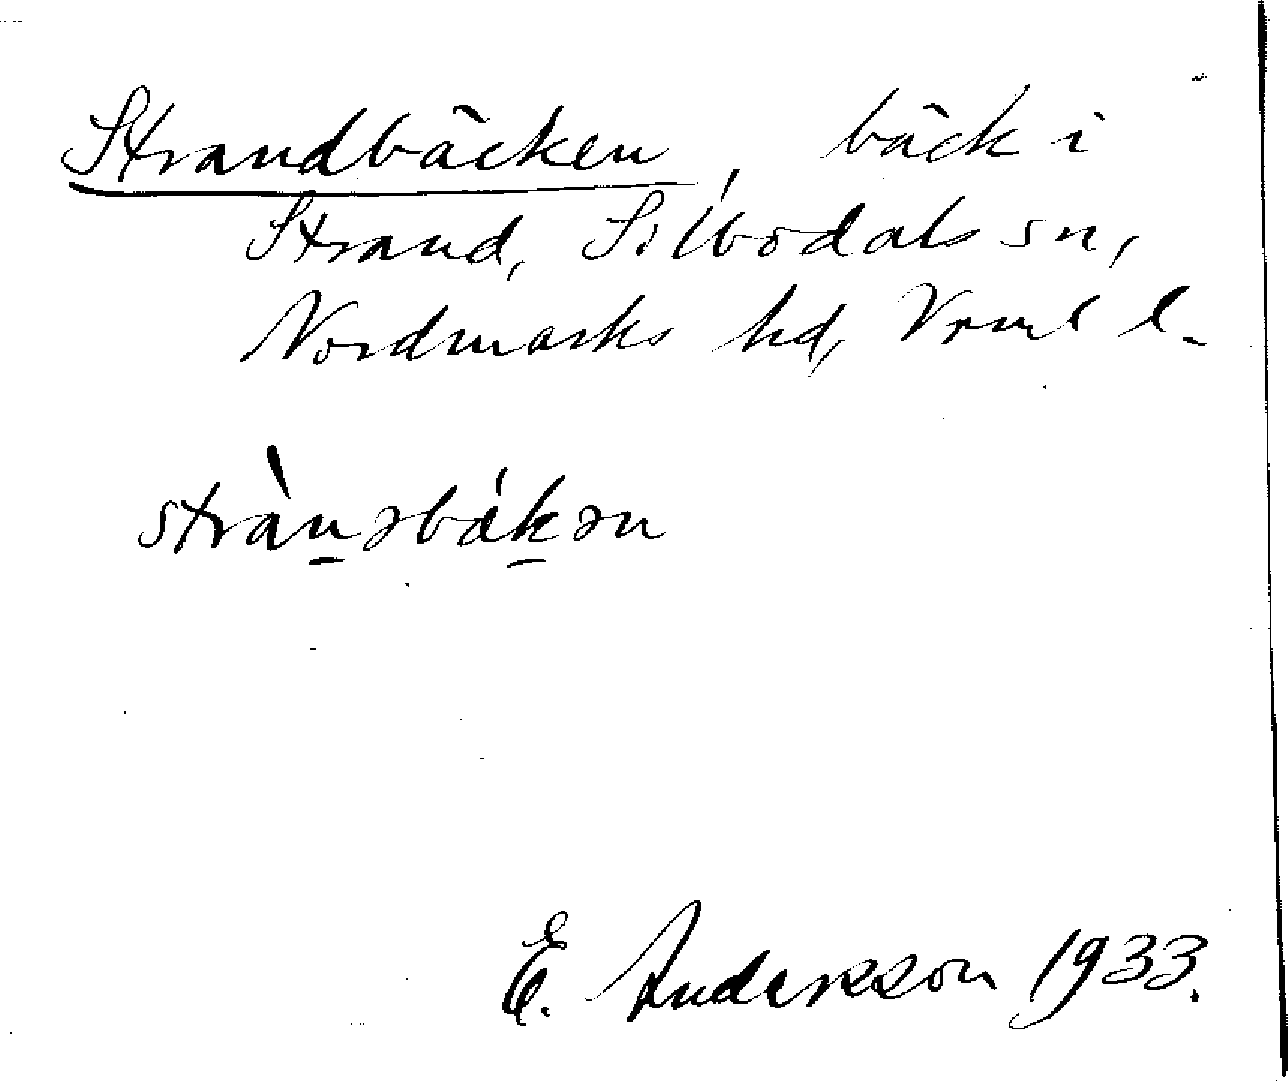 Strandbäcken, bäck i
Strand, Silbodals sn,
Nordmarks hd, Vrml l.
stràn̲əbák̲ən
E. Andersson 1933.